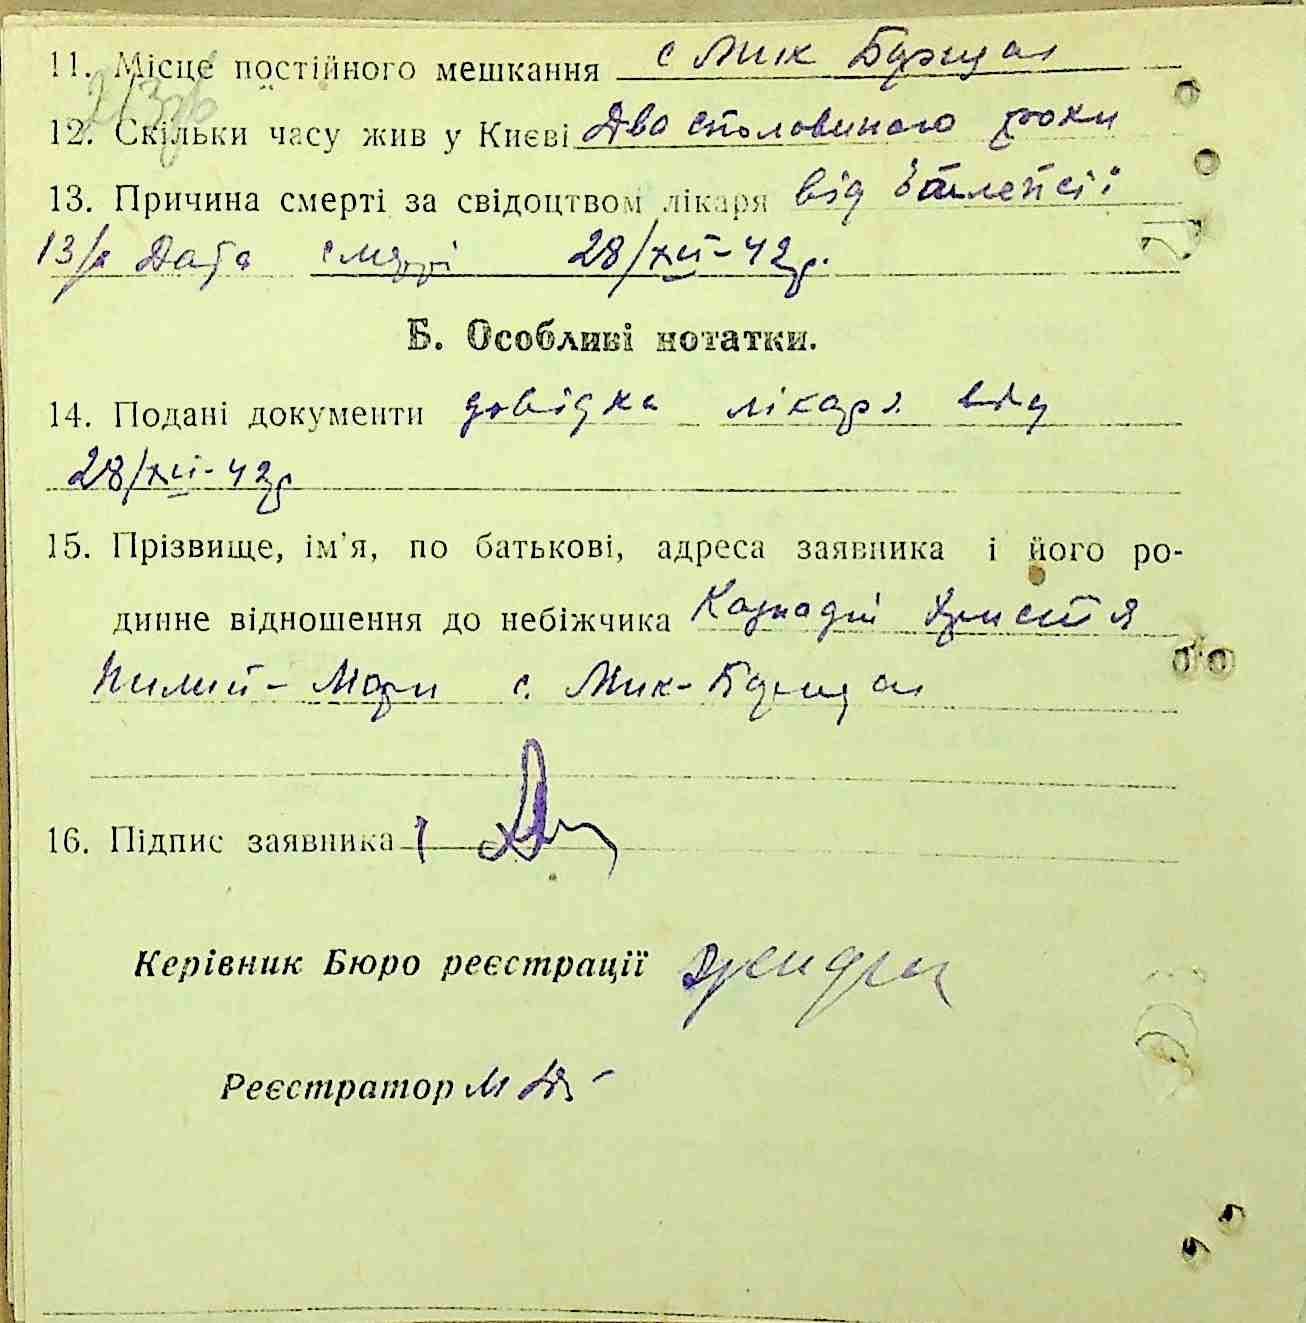 11. Місце постійного мешкання с Мик Борщаг
12. Скільки часу жив у Києві Два споловиною роки
13. Причина смерті за свідоцтвом лікаря від Эпилепсіі
13/а Дата смерті 28/XII-42р.
Б. Особливі нотатки.
14. Подані документи довідка лікаря від
28/XII-42р
15. Прізвище, ім'я, по батькові, адреса заявника і його ро-
динне відношення до небіжчика Христя
с. Мик-Борщаг
16. Підпис заявника
Керівник Бюро реєстрації
Реєстратор